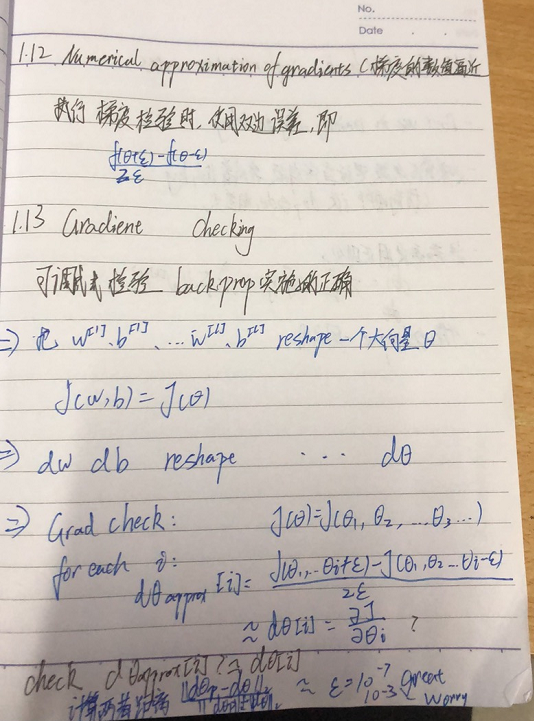 No.
Date
1.12 Numerical approximation of gradients (梯度的数值逼近
执行 梯度检验时, 使用双边误差, 即
f(θ+ε)-f(θ-ε)
2ε
1.13 Gradiene Checking
可调试式检验 backprop实施的正确
⇒ 把 w[1], b[1], ... w[L], b[L] reshape 一个大向量 θ
J(w,b) = J(θ)
⇒ dw db reshape ... dθ
⇒ Grad check: J(θ)=J(θ1, θ2, ...θ3...)
for each i:
dθapprox[i] = J(θ1,...θi+ε)-J(θ1,θ2...θi-ε)
2ε
≈ dθ[i] = ∂J/∂θi ?
check dθapprox[i] ?≈ dθ[i]
计算两者距离 ≈ ε=10-7 great
10-3 worry